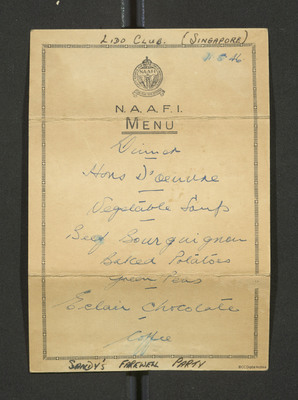 LIDO CLUB. (SINGAPORE)
5-46
N.A.A.F.I.
N.A.A.F.I.
MENU
Dinner
Hors D'oeuvre
Vegetable Soup
Beef Bourguignon
Baked Potatoes
Green Peas
Eclair Chocolate
Coffee
SANDY'S FAREWELL PARTY